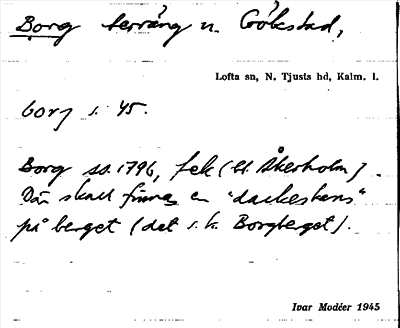 Borg terräng n. Gökstad,
Lofta sn, N. Tjusts hd, Kalm. l.
borj s. 45.
Borg so. 1796, fek (bl. Åkerholm).
Där skall finnas en "dackestens"
på berget (det s. k. Borgberget).
Ivar Modéer 1945